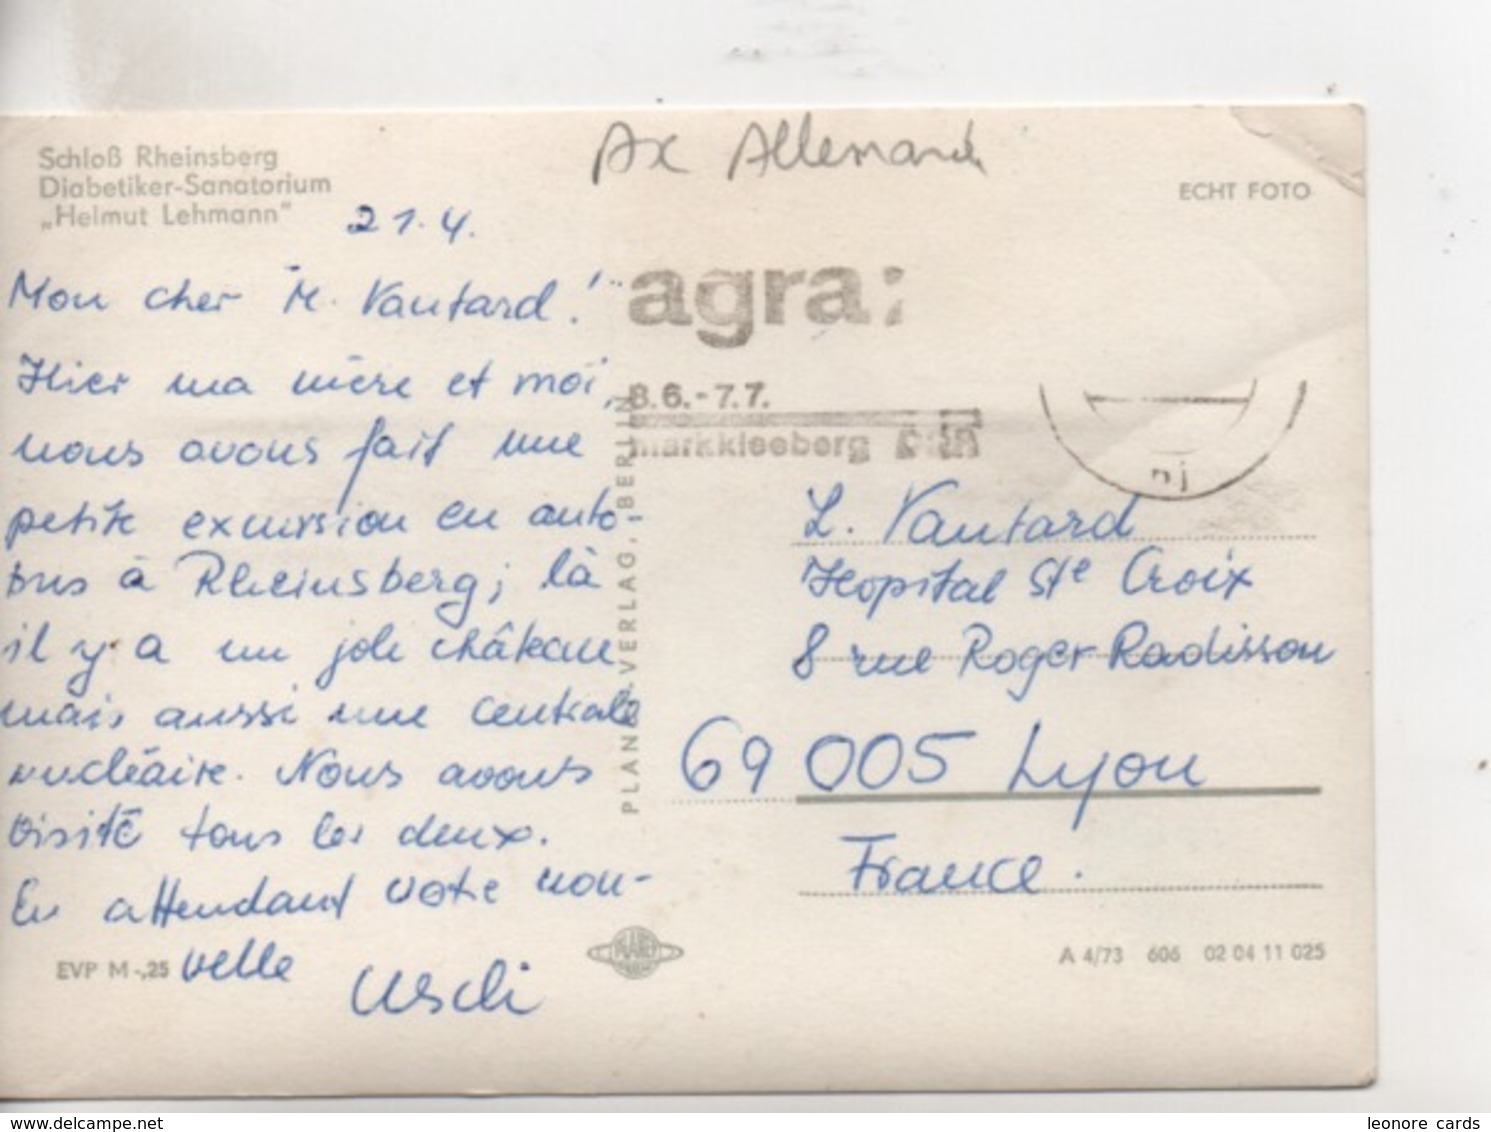 Schloß Rheinsberg
Diabetiker-Sanatorium
„Helmut Lehmann"
Ax Allemand
ECHT FOTO
21.4.
Mon cher M. Vautard!
Hier ma mère et moi,
nous avons fait une
petite excursion en auto-
bus à Rheinsberg; là
il y a un joli château
mais aussi une centrale
nucléaire. Nous avons
visité tous les deux.
En attendant votre nou-
velle
Uschi
EVP M -,25
PLANET-VERLAG, BERLIN
agra
8.6.-7.7.
markkleeberg
L. Vautard
Hopital Ste Croix
8 rue Roger Radisson
69005 Lyon
France.
PLANET
A 4/73 606 02 04 11 025
delcampe.net
leonore cards